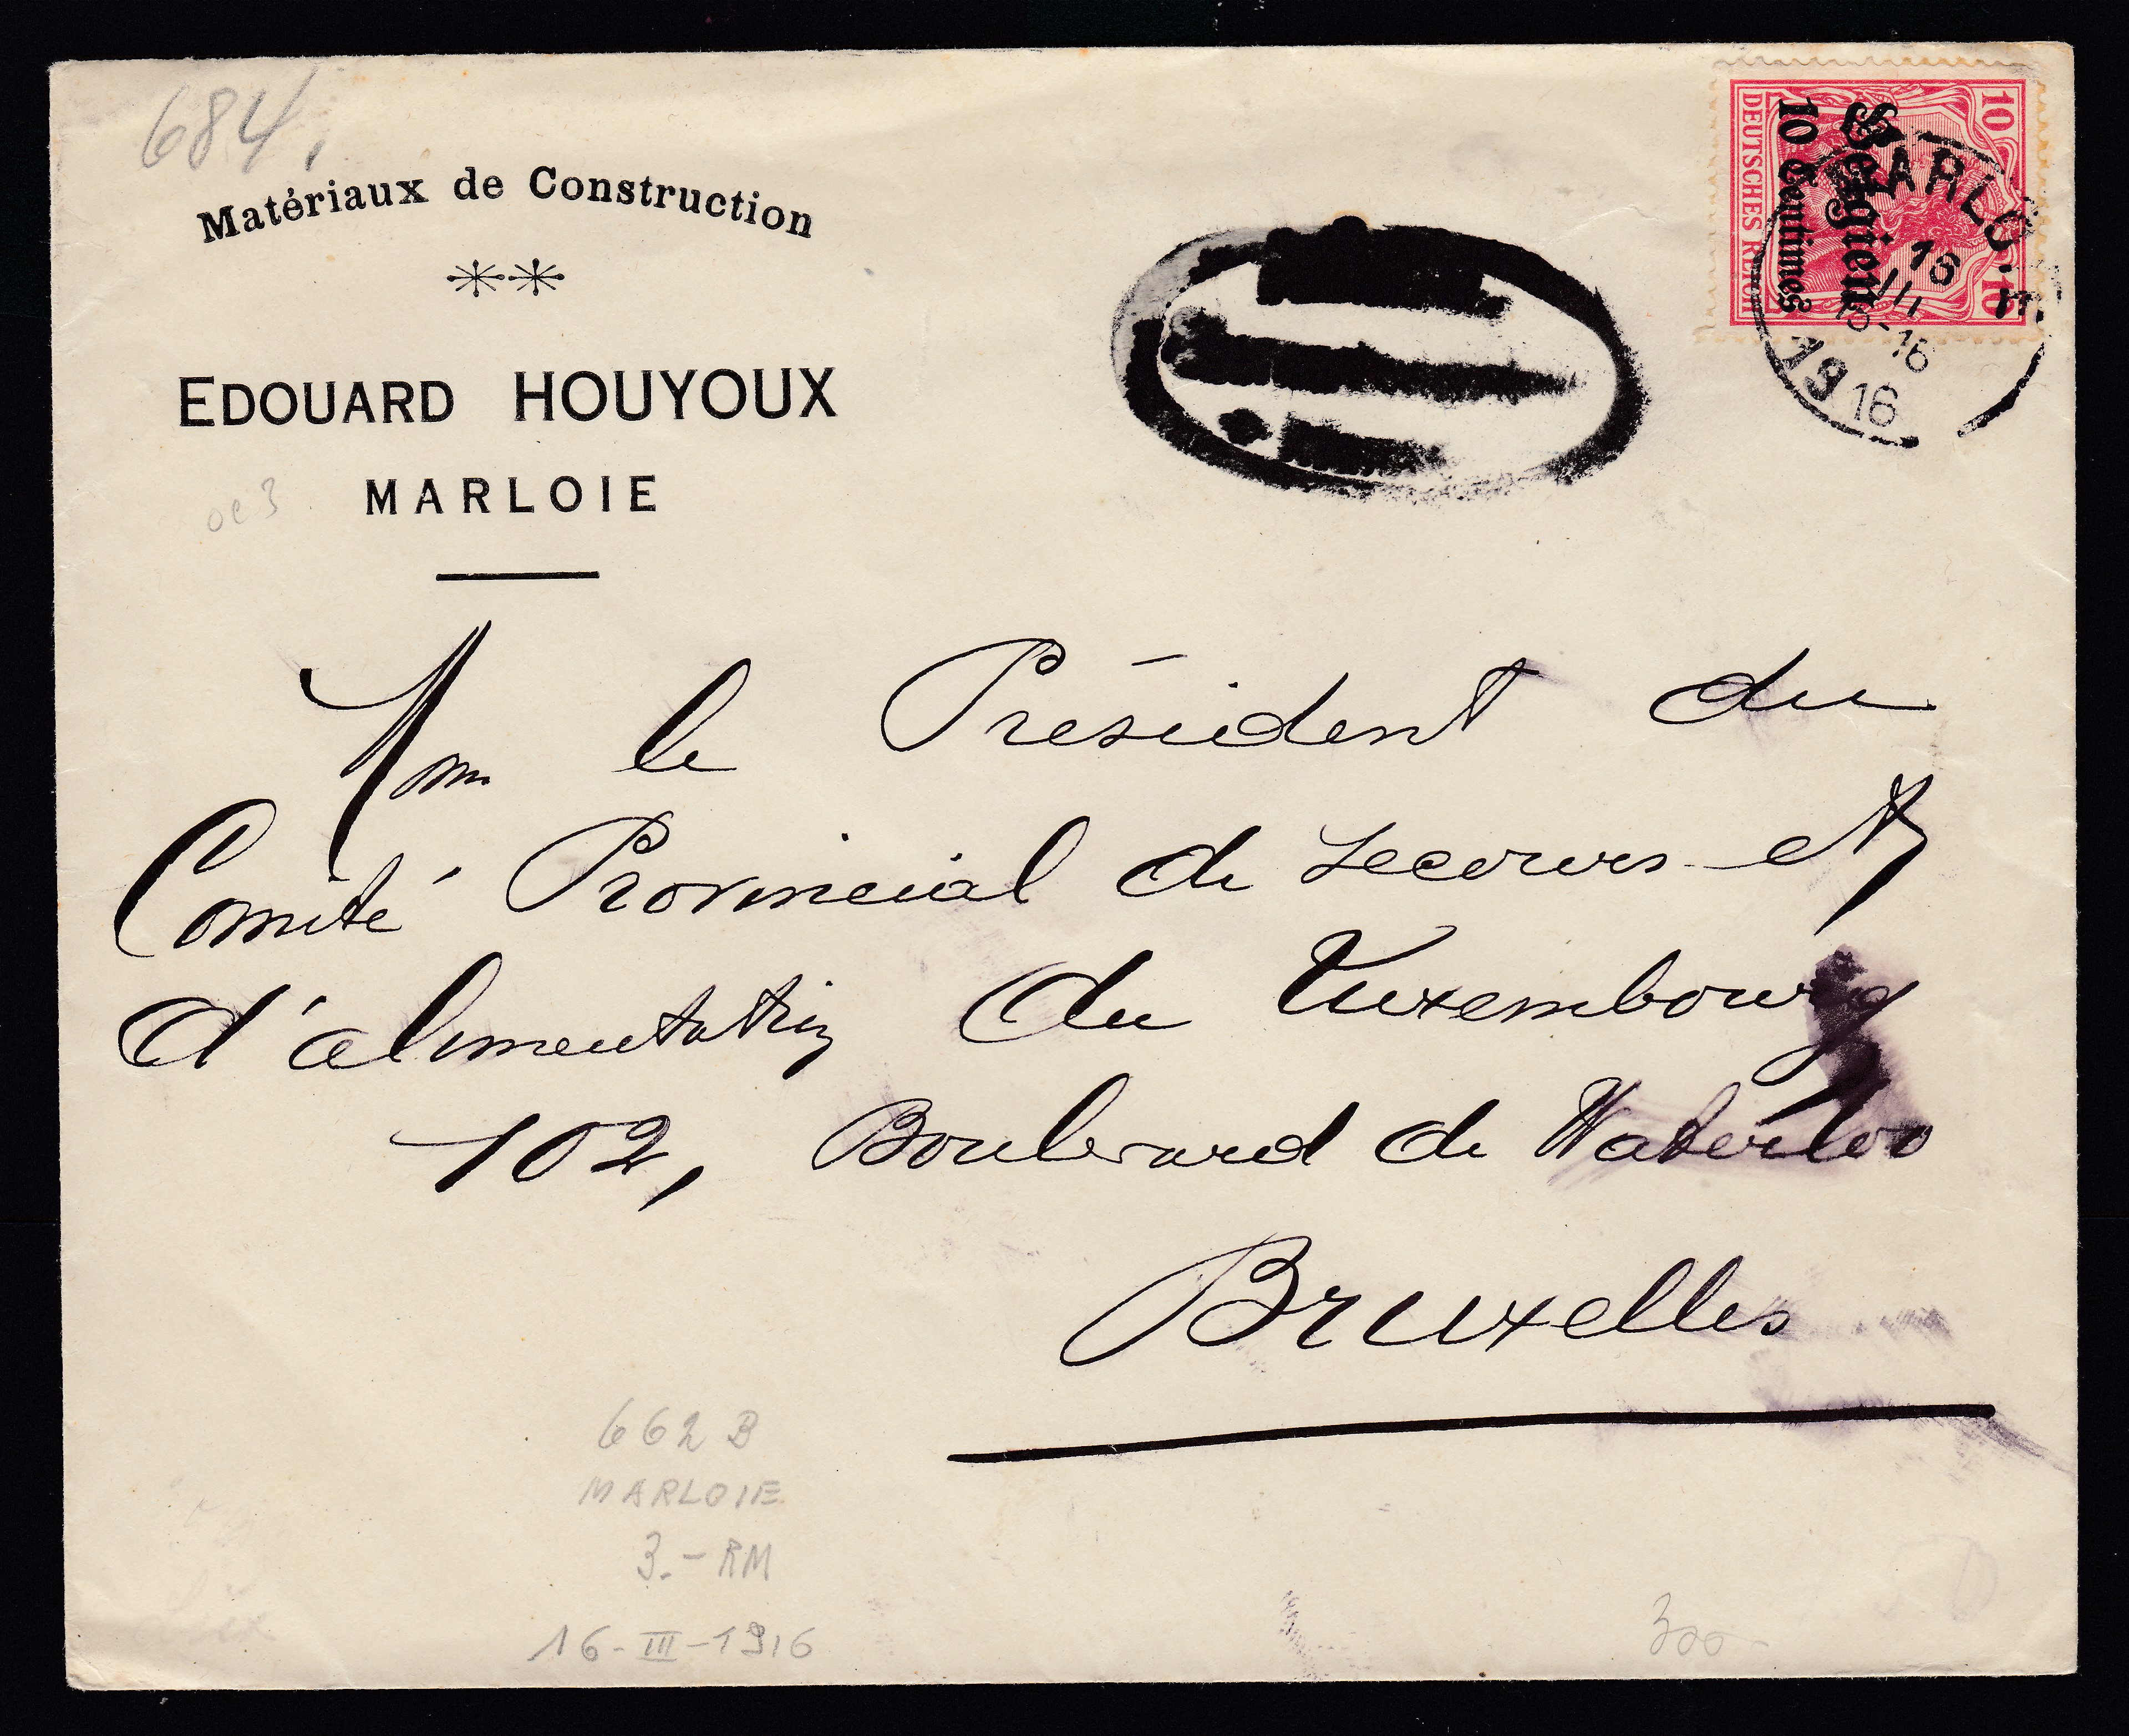 684.
Matériaux de Construction
EDOUARD HOUYOUX
MARLOIE
oe3
10
10
DEUTSCHES REICH
Belgien
10 Centimes
MARLO
16
III
15-16
1916
Mon le Président du
Comité Provincial de secours et
d'alimentation du Luxembourg
102, Boulevard de Waterloo
Bruxelles
662 B
MARLOIE
3.- RM
16-III-1916
300-